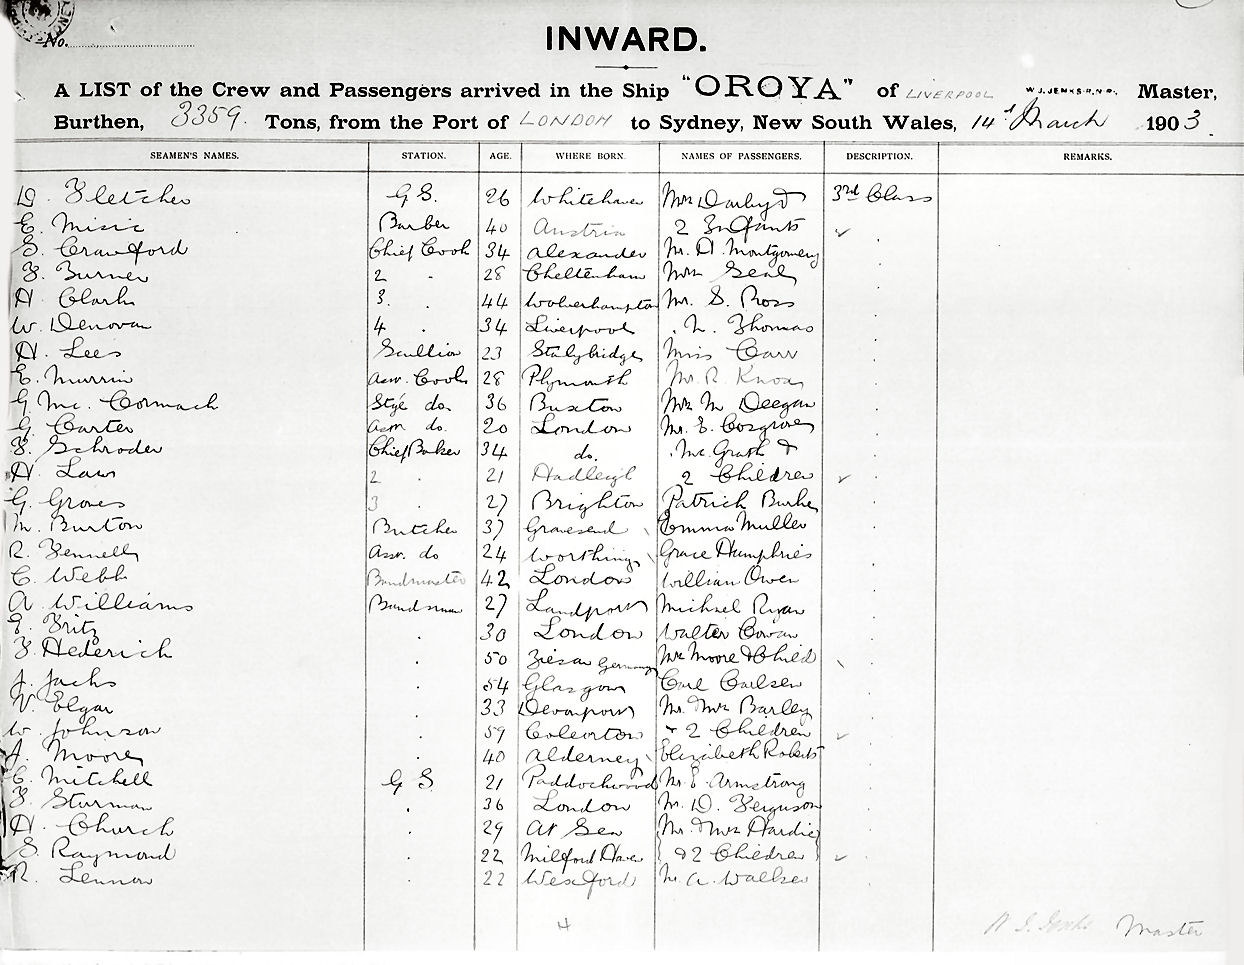 No.
INWARD.
A LIST of the Crew and Passengers arrived in the Ship "OROYA" of LIVERPOOL W.J. JENKS R.N.R., Master,
Burthen, 3359. Tons, from the Port of LONDON to Sydney, New South Wales, 14th March 1903.
SEAMEN'S NAMES. STATION. AGE. WHERE BORN. NAMES OF PASSENGERS. DESCRIPTION. REMARKS.
D. Fletcher G.S. 26 Whitehaven Mrs Darby & 3rd Class
E. Misic Barber 40 Austria 2 Infants
S. Crawford Chief Cook 34 Alexander Mr. A. Montgomery
F. Burner 2 " 28 Cheltenham Mrs Seal
H. Clark 3. " 44 Wolverhampton Mr. S. Ross
W. Denovan 4 " 34 Liverpool " Thomas
H. Lees Scullion 23 Stalybridge Miss Carr
E. Murrin Assn. Cook 28 Plymouth Mr. R. Knox
G. Mc. Cormack Stge do. 36 Buxton Mrs M Deegan
G. Carter Assn do. 20 London Mr. E. Cosgrove
F. Schroder Chief Baker 34 do. " Mc. Grath &
H. Law 2 " 21 Hadleigh 2 Children
G. Groves 3 27 Brighton Patrick Burke
M. Burton Butcher 37 Gravesend Emma Muller
R. Fennell Assn. do 24 Worthing Grace Humphries
C. Webb Bandmaster 42 London William Owen
A. Williams Bandsman 27 Landport Michael Ryan
Fritz " 30 London Walter Cowan
F. Hederich " 50 Germany Mrs Moore & Child
J. Jacks " 54 Glasgow Carl Carlsen
V. Elgar " 33 Devonport Mr. & Mrs Barley
W. Johnson " 59 Coleorton + 2 Children
J. Moore " 40 Alderney Elizabeth Roberts
C. Mitchell G S. 21 Paddockwood Mr. E. Armstrong
F. Sturman " 36 London Mr. D. Ferguson
H. Church " 29 At Sea Mr. & Mrs Hardie
S. Raymond " 22 Milford Haven & 2 Children
R. Lennon " 22 Wexford Mr. A. Walker
Master